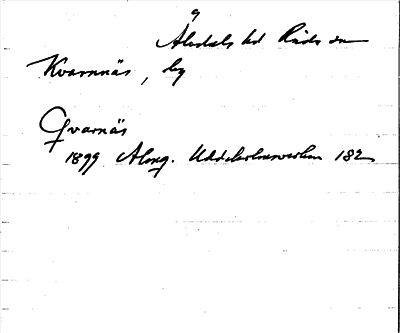 Älvdals hd Råda sn
Kvarnnäs, by
Qvarnäs
1899 Almq. Uddeholmsverken 182